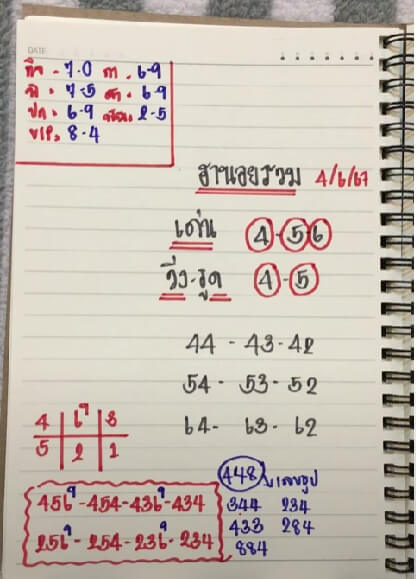 DATE
กิจ - 7.0 กา . 6-9
พิ = 7-5 ตา . 6-9
ปก = 6-9 2-5
VIP = 8-4
ฮานอยรวม 4/6/67
เด่น 4-5-6
วิ่ง-รูด 4-5
44 - 43-42
54 - 53-52
64 - 63 - 62
4 6 3
5 2 1
448 เลขธูป
344 234
433 284
884
456-454-436-434
256-254-236-234